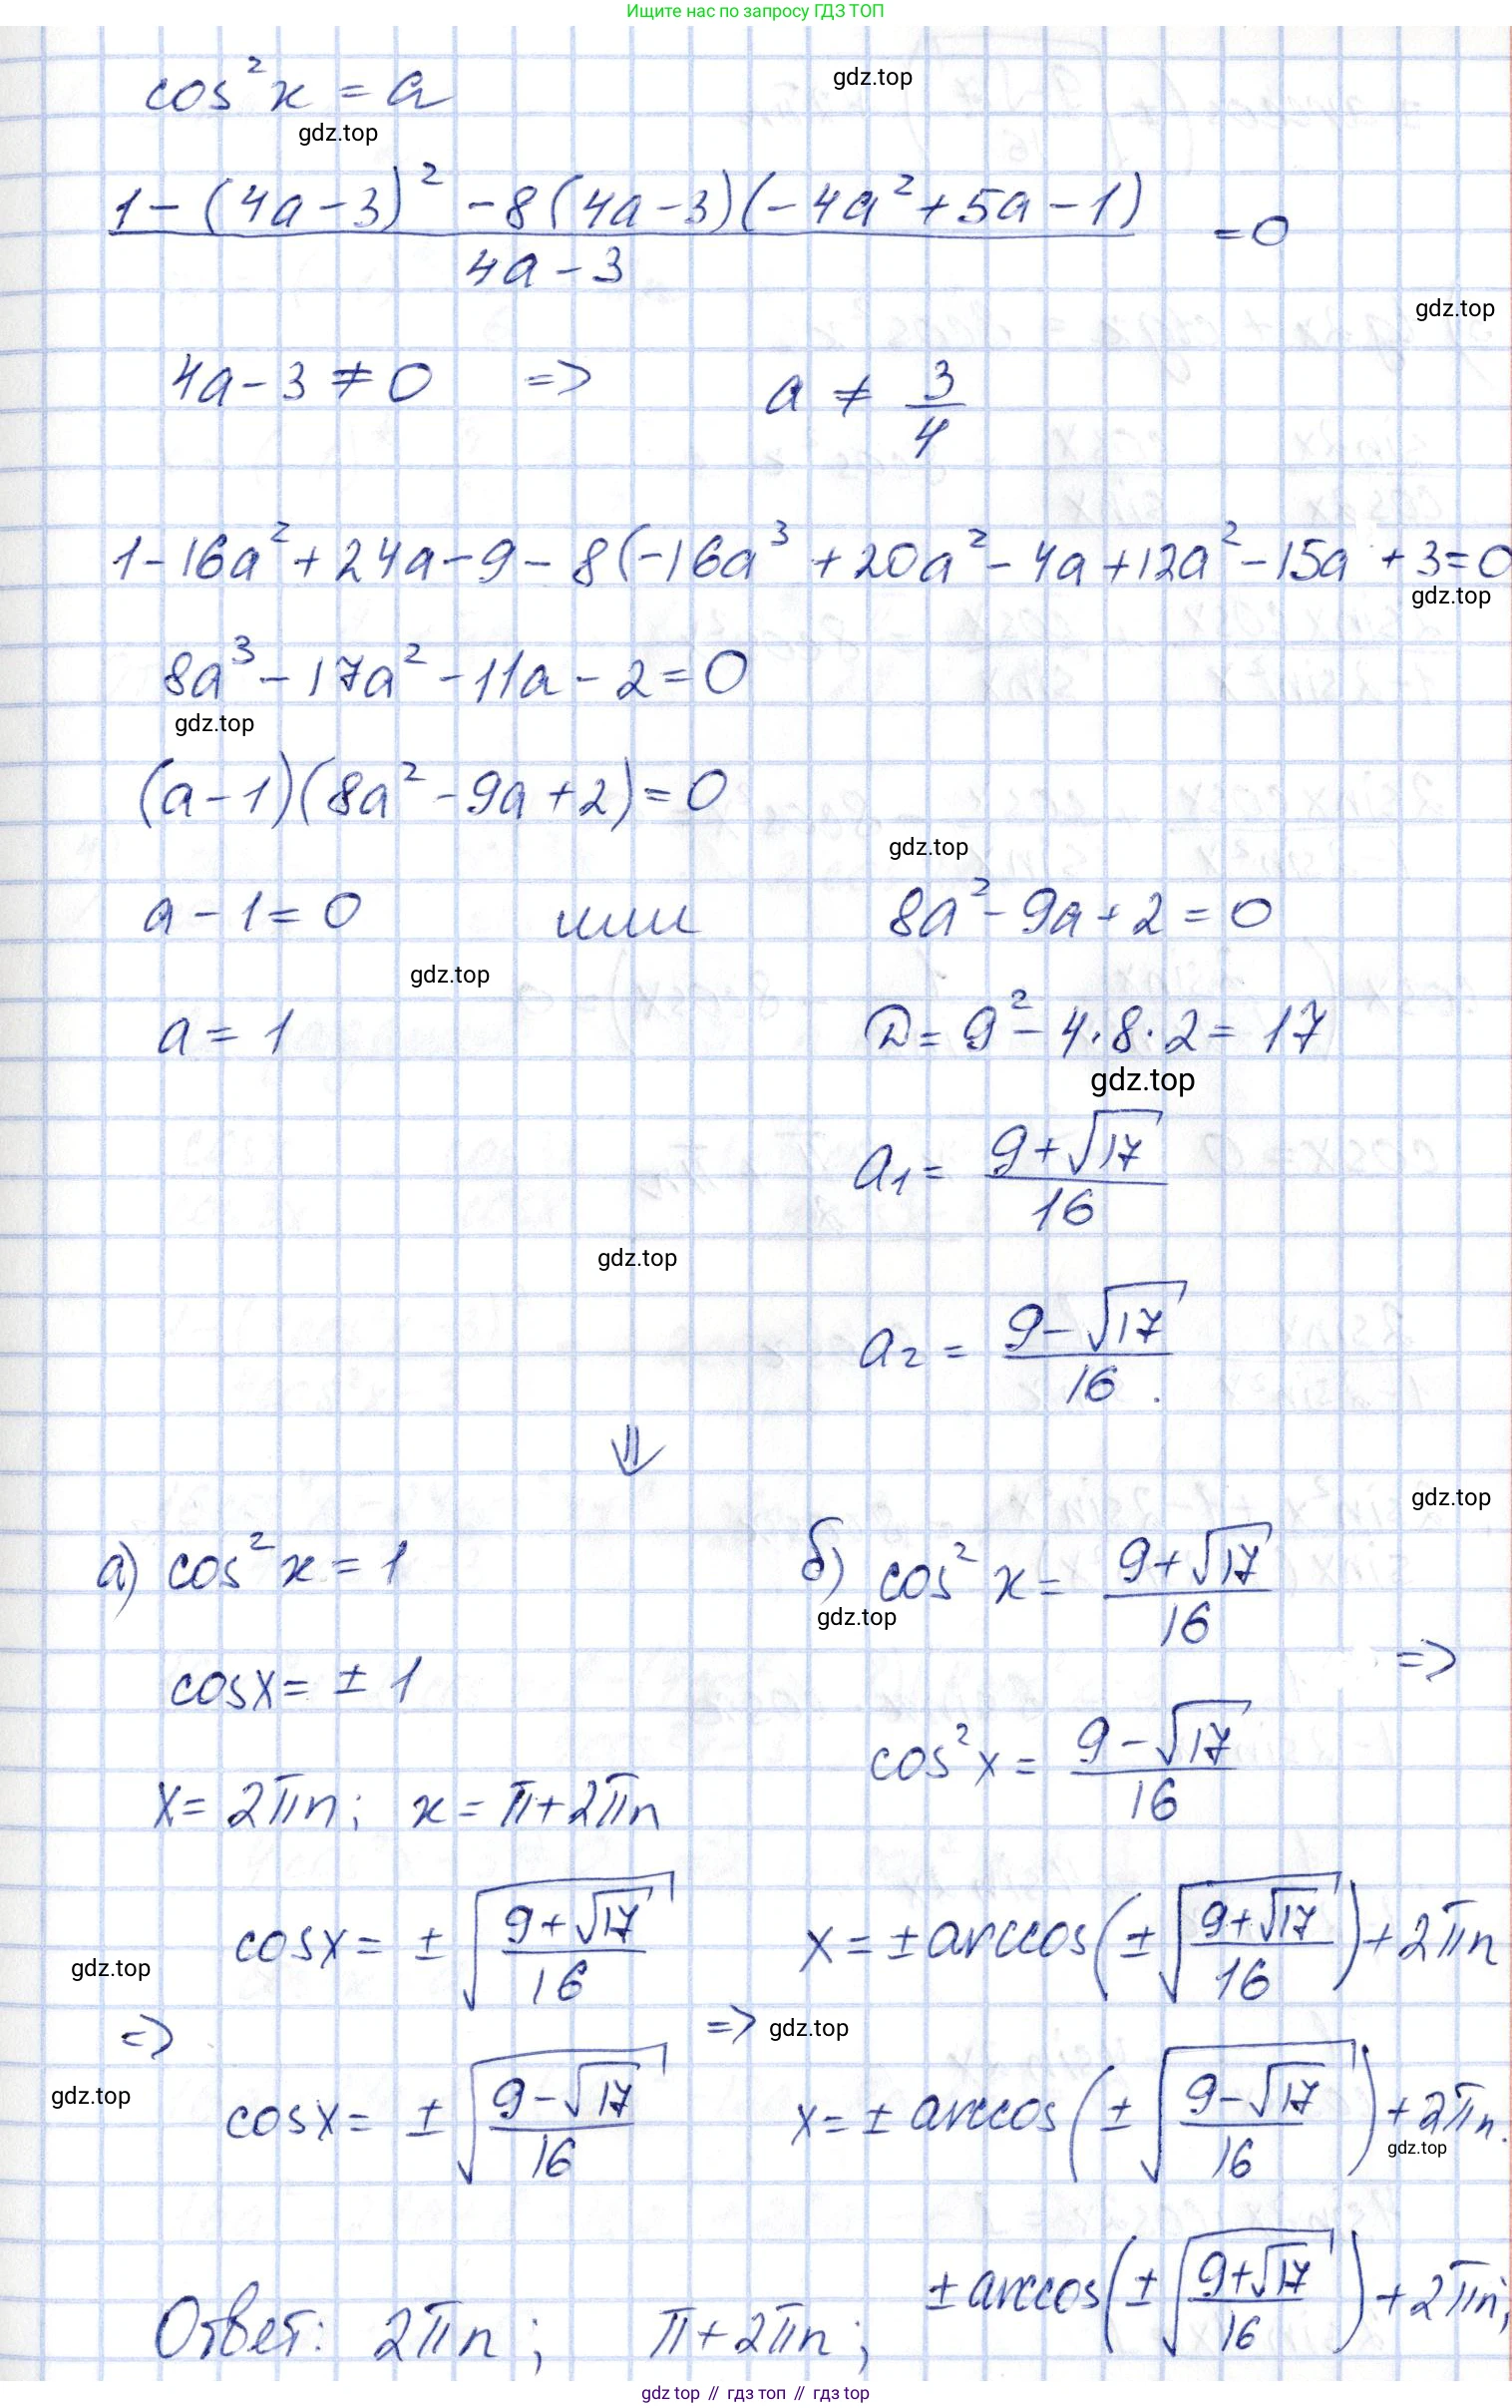 Ищите нас по запросу ГДЗ ТОП
cos²x = a
gdz.top
gdz.top
1 - (4a - 3)² - 8(4a - 3)(-4a² + 5a - 1)
= 0
4a - 3
gdz.top
4a - 3 ≠ 0 => a ≠ 3/4
1 - 16a² + 24a - 9 - 8(-16a³ + 20a² - 4a + 12a² - 15a + 3 = 0
gdz.top
8a³ - 17a² - 11a - 2 = 0
gdz.top
(a - 1)(8a² - 9a + 2) = 0
gdz.top
a - 1 = 0 или 8a² - 9a + 2 = 0
gdz.top
a = 1 D = 9² - 4·8·2 = 17
gdz.top
a₁ = (9 + √17)/16
gdz.top
a₂ = (9 - √17)/16.
⇓
gdz.top
а) cos²x = 1 б) cos²x = (9 + √17)/16
gdz.top
=>
cosx = ± 1
cos²x = (9 - √17)/16
x = 2πn; x = π + 2πn
cosx = ± √((9 + √17)/16) x = ± arccos(± √((9 + √17)/16)) + 2πn
gdz.top
=> => gdz.top
gdz.top
cosx = ± √((9 - √17)/16) x = ± arccos(± √((9 - √17)/16)) + 2πn.
gdz.top
Ответ: 2πn; π + 2πn; ± arccos(± √((9 + √17)/16)) + 2πn;
gdz top // гдз топ // гдз top